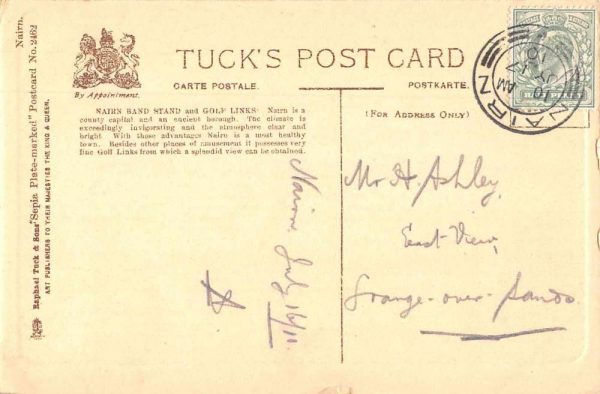 Nairn.
Raphael Tuck & Sons' "Sepia Plate-marked" Postcard No. 2462
ART PUBLISHERS TO THEIR MAJESTIES THE KING & QUEEN.
By Appointment.
TUCK'S POST CARD
CARTE POSTALE.
POSTKARTE.
NAIRN BAND STAND and GOLF LINKS. Nairn is a
county capital and an ancient borough. The climate is
exceedingly invigorating and the atmosphere clear and
bright. With these advantages Nairn is a most healthy
town. Besides other places of amusement it possesses very
fine Golf Links from which a splendid view can be obtained.
(FOR ADDRESS ONLY)
NAIRN
10 AM
JY 17
10
Nairn July 16/10.
A
Mr H. Ashley,
East View,
Grange-over-Sands